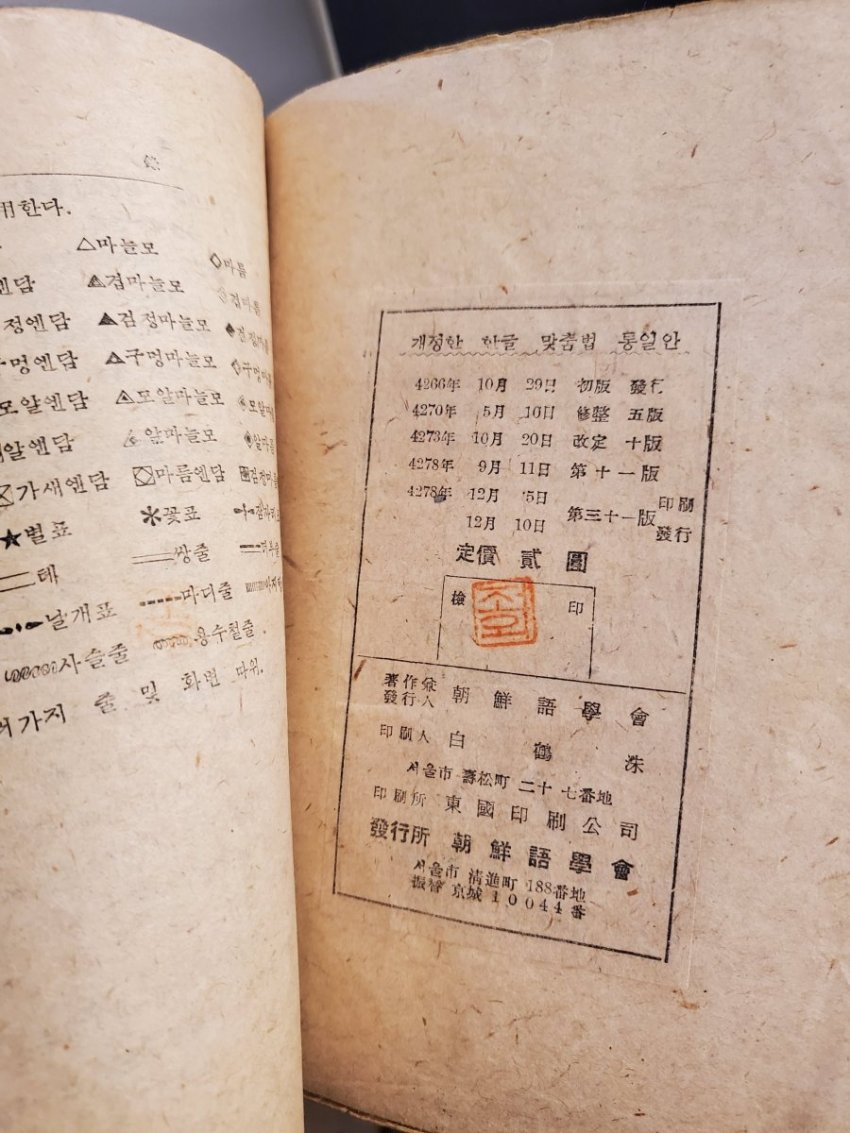 用한다.
△마늘모
◇마름
엔담
▲겹마늘모
겹마름
정엔담
▲검정마늘모
◆검정마름
구멍엔담
△구멍마늘모
◇구멍마름
모알엔담
모알마늘모
모알마름
알엔담
알마늘모
알마름
가새엔담
마름엔담
★별표
꽃표
테
쌍줄
날개표
마디줄
사슬줄
용수철줄.
러가지 줄 및 화변 따위.
개정한 한글 맞춤법 통일안
4266年 10月 29日 初版 發行
4270年 5月 10日 修整 五版
4273年 10月 20日 改定 十版
4278年 9月 11日 第十一版
4278年 12月 5日 第三十一版 印刷
12月 10日 發行
定價 貳 圓
檢 印
著作兼
發行人 朝鮮語學會
印刷人 白鶴洙
서울市 壽松町 二十七番地
印刷所 東國印刷公司
發行所 朝鮮語學會
서울市 淸進町 188番地
振替 京城 10044番